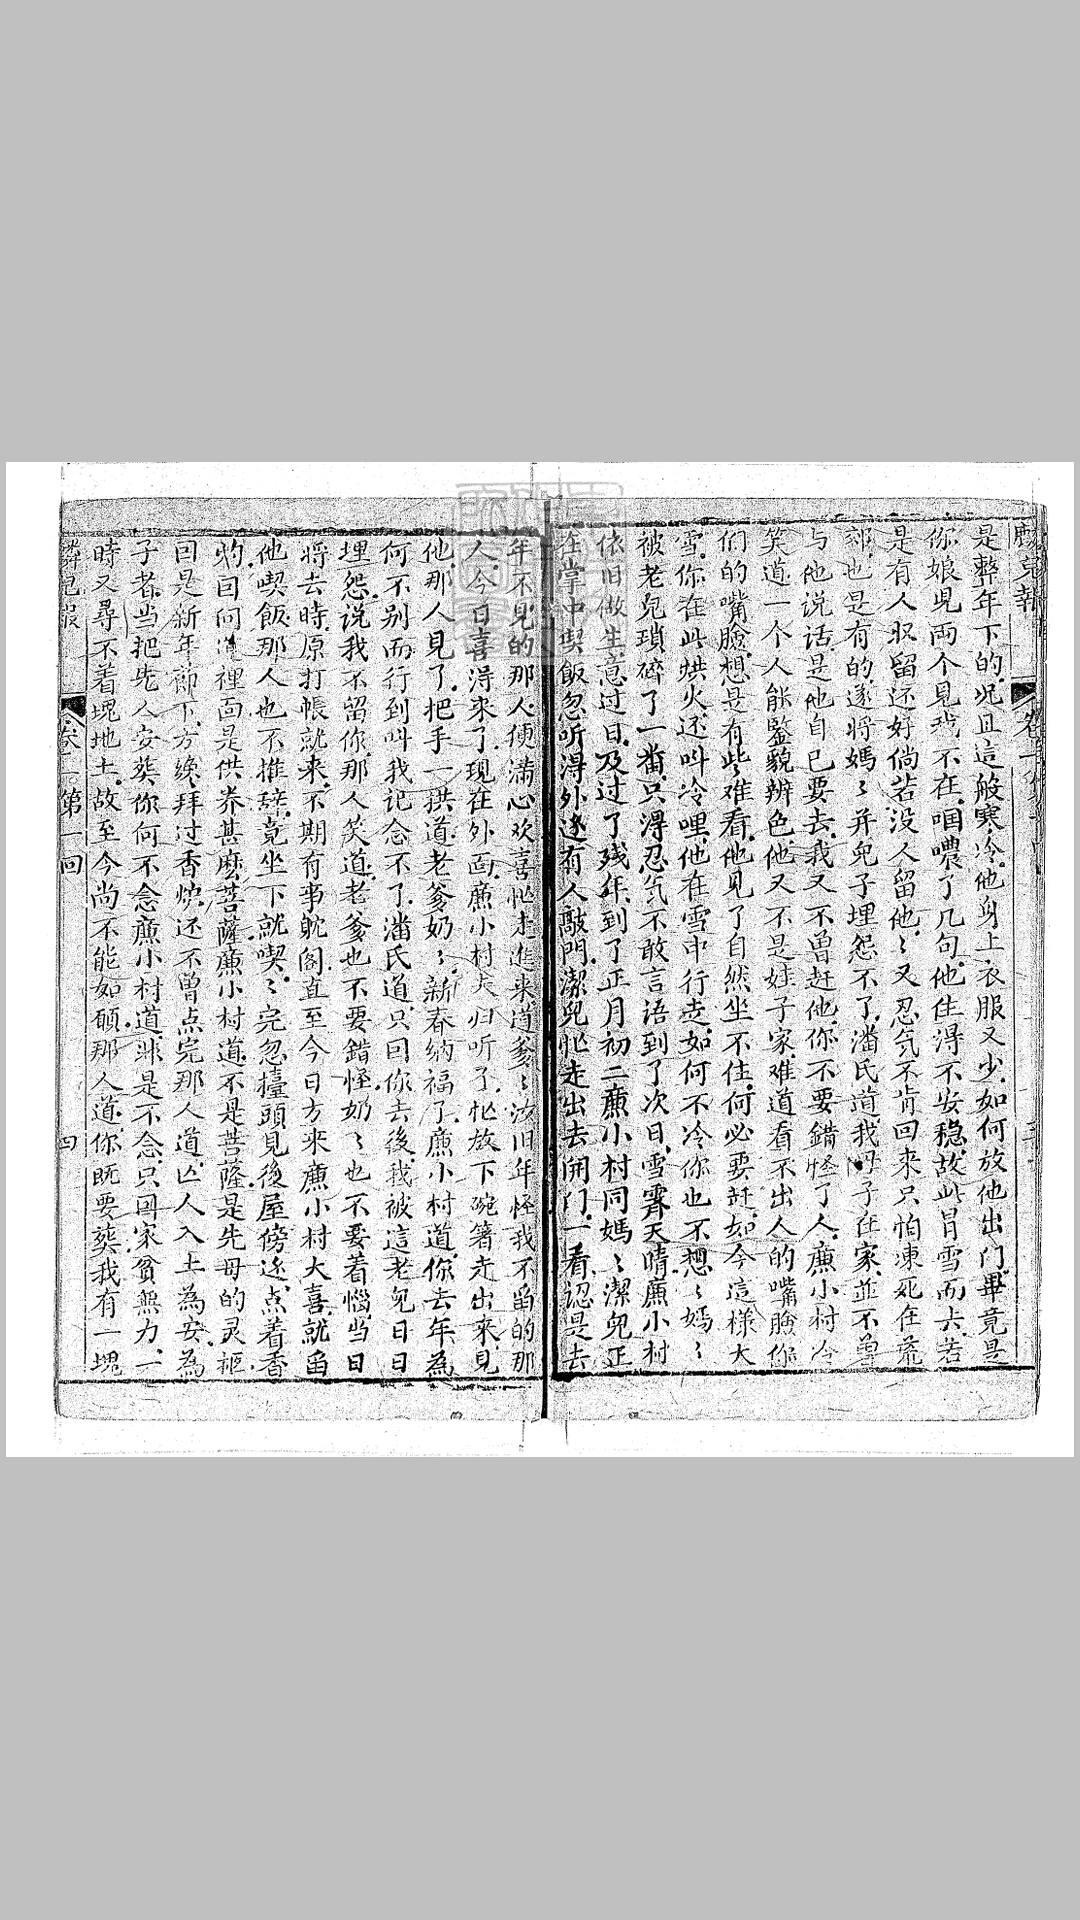 是獘年下的况且這般寒冷他身上衣服又少如何放他出门畢竟是
你娘児両个見我不在咱噥了几句他住得不安稳故此冒雪而去若
是有人収留还好倘若没人留他〻又忍气不肯回来只怕凍死在荒
郊也是有的遂将媽〻并児子埋怨不了潘氏道我母子在家並不曽
与他说话是他自已要去我又不曽赶他你不要錯怪了人亷小村冷
笑道一个人能鑒貌辨色他又不是娃子家难道看不出人的嘴臉你
们的嘴臉想是有些难看他見了自然坐不住何必要赶如今這様大
雪你在此烘火还叫冷哩他在雪中行走如何不冷你也不想〻媽〻
被老児琐碎了一畨只淂忍气不敢言语到了次日雪霁天晴亷小村
依旧做生意过日及过了残年到了正月初二亷小村同媽〻潔児正
在堂中喫飯忽听淂外边有人敲門潔児忙走出去開门一看認是去
年不見的那人便满心欢喜忙走進来道爹〻汝旧年怪我不畄的那
人今日喜淂来了現在外面亷小村夫归听了忙放下碗箸走出来見
他那人見了把手一拱道老爹奶〻新春纳福了亷小村道你去年為
何不别而行到叫我记念不了潘氏道只回你去後我被這老児日日
埋怨说我不留你那人笑道老爹也不要錯怪奶〻也不要着惱当日
将去時原打帳就来不期有事躭阁直至今日方来亷小村大喜就畄
他喫飯那人也不推辞竟坐下就喫〻完忽擡頭見後屋傍边点着香
灼因问道裡面是供养甚麽菩薩亷小村道不是菩薩是先母的灵柩
曰是新年節下方纔拜过香烛还不曽点完那人道亡人入土為安為
子者当把先人安葵你何不念亷小村道非是不念只因家貧無力一
時又尋不着塊地土故至今尚不能如願那人道你既要葵我有一塊
麟児报 卷一 第一回 四